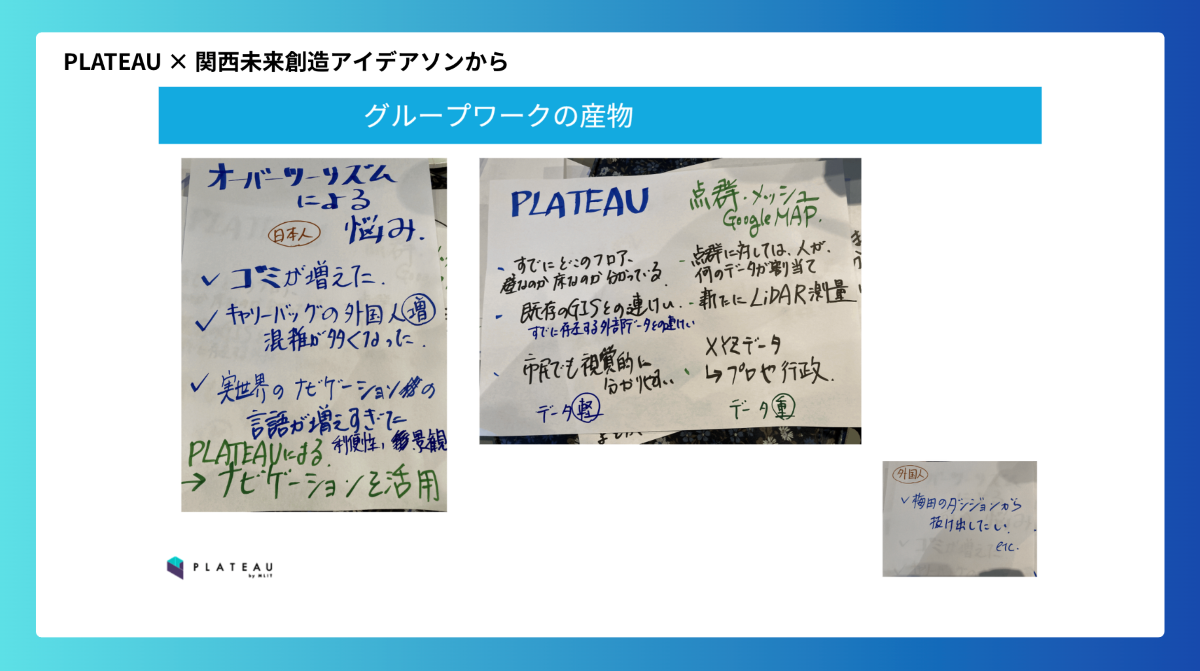 PLATEAU × 関西未来創造アイデアソンから
グループワークの産物
オーバーツーリズム
による
日本人
悩み.
✓ ゴミが増えた.
✓ キャリーバッグの外国人増
混雑が多くなった.
✓ 実世界のナビゲーションの
言語が増えすぎた
利便性, 景観
PLATEAUによる
→ ナビゲーションを活用
PLATEAU
・すでにどこのフロア、
壁なのか床なのか分かっている.
- 既存のGISとの連けい.
すでに存在する外部データとの連けい
・市民でも視覚的に
分かりやすい
データ軽
点群・メッシュ
Google MAP.
- 点群に対しては、人が、
何のデータか割当て
- 新たにLiDAR測量
XYZデータ
↳ プロや行政.
データ重
外国人
✓ 梅田のダンジョンから
抜け出したい.
etc.
PLATEAU
by MLIT